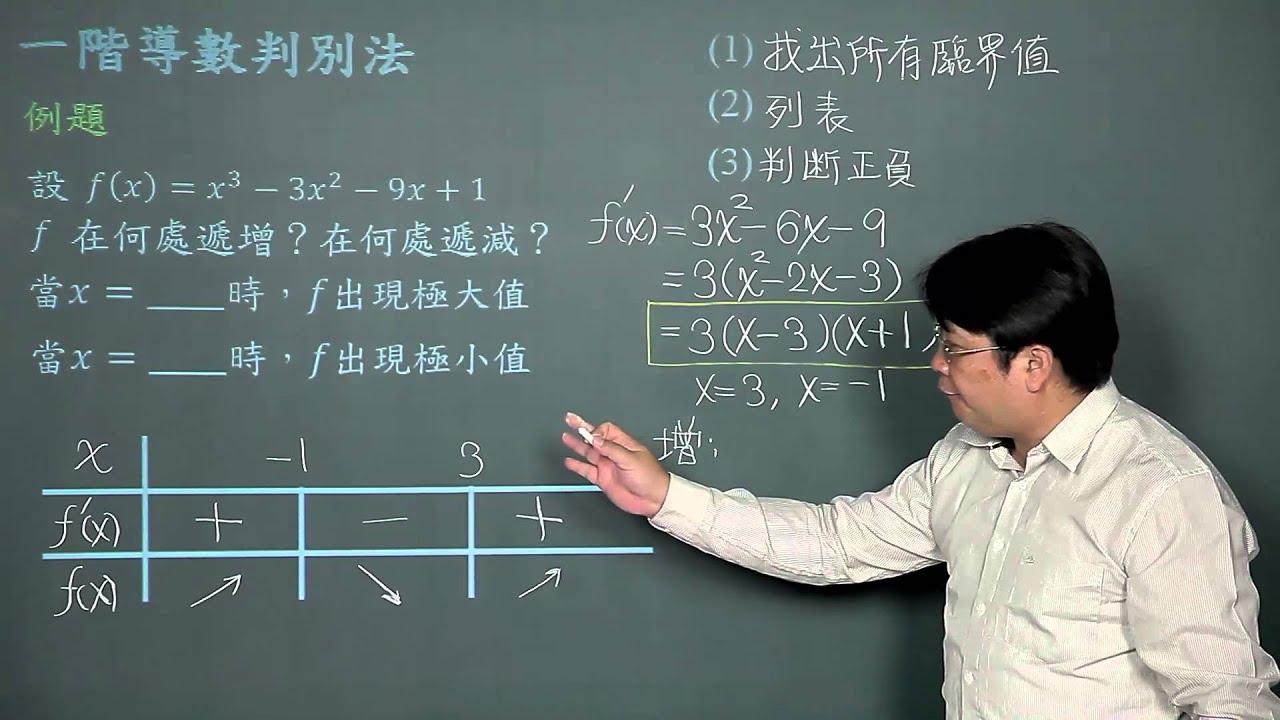 一階導數判別法
例題
設 f(x) = x³ − 3x² − 9x + 1
f 在何處遞增？在何處遞減？
當x = ____時，f出現極大值
當x = ____時，f出現極小值
(1) 找出所有臨界值
(2) 列表
(3) 判斷正負
f'(x) = 3x² − 6x − 9
= 3(x² − 2x − 3)
= 3(x − 3)(x + 1
x = 3, x = −1
增:
x −1 3
f'(x) + − +
f(x) ↗ ↘ ↗